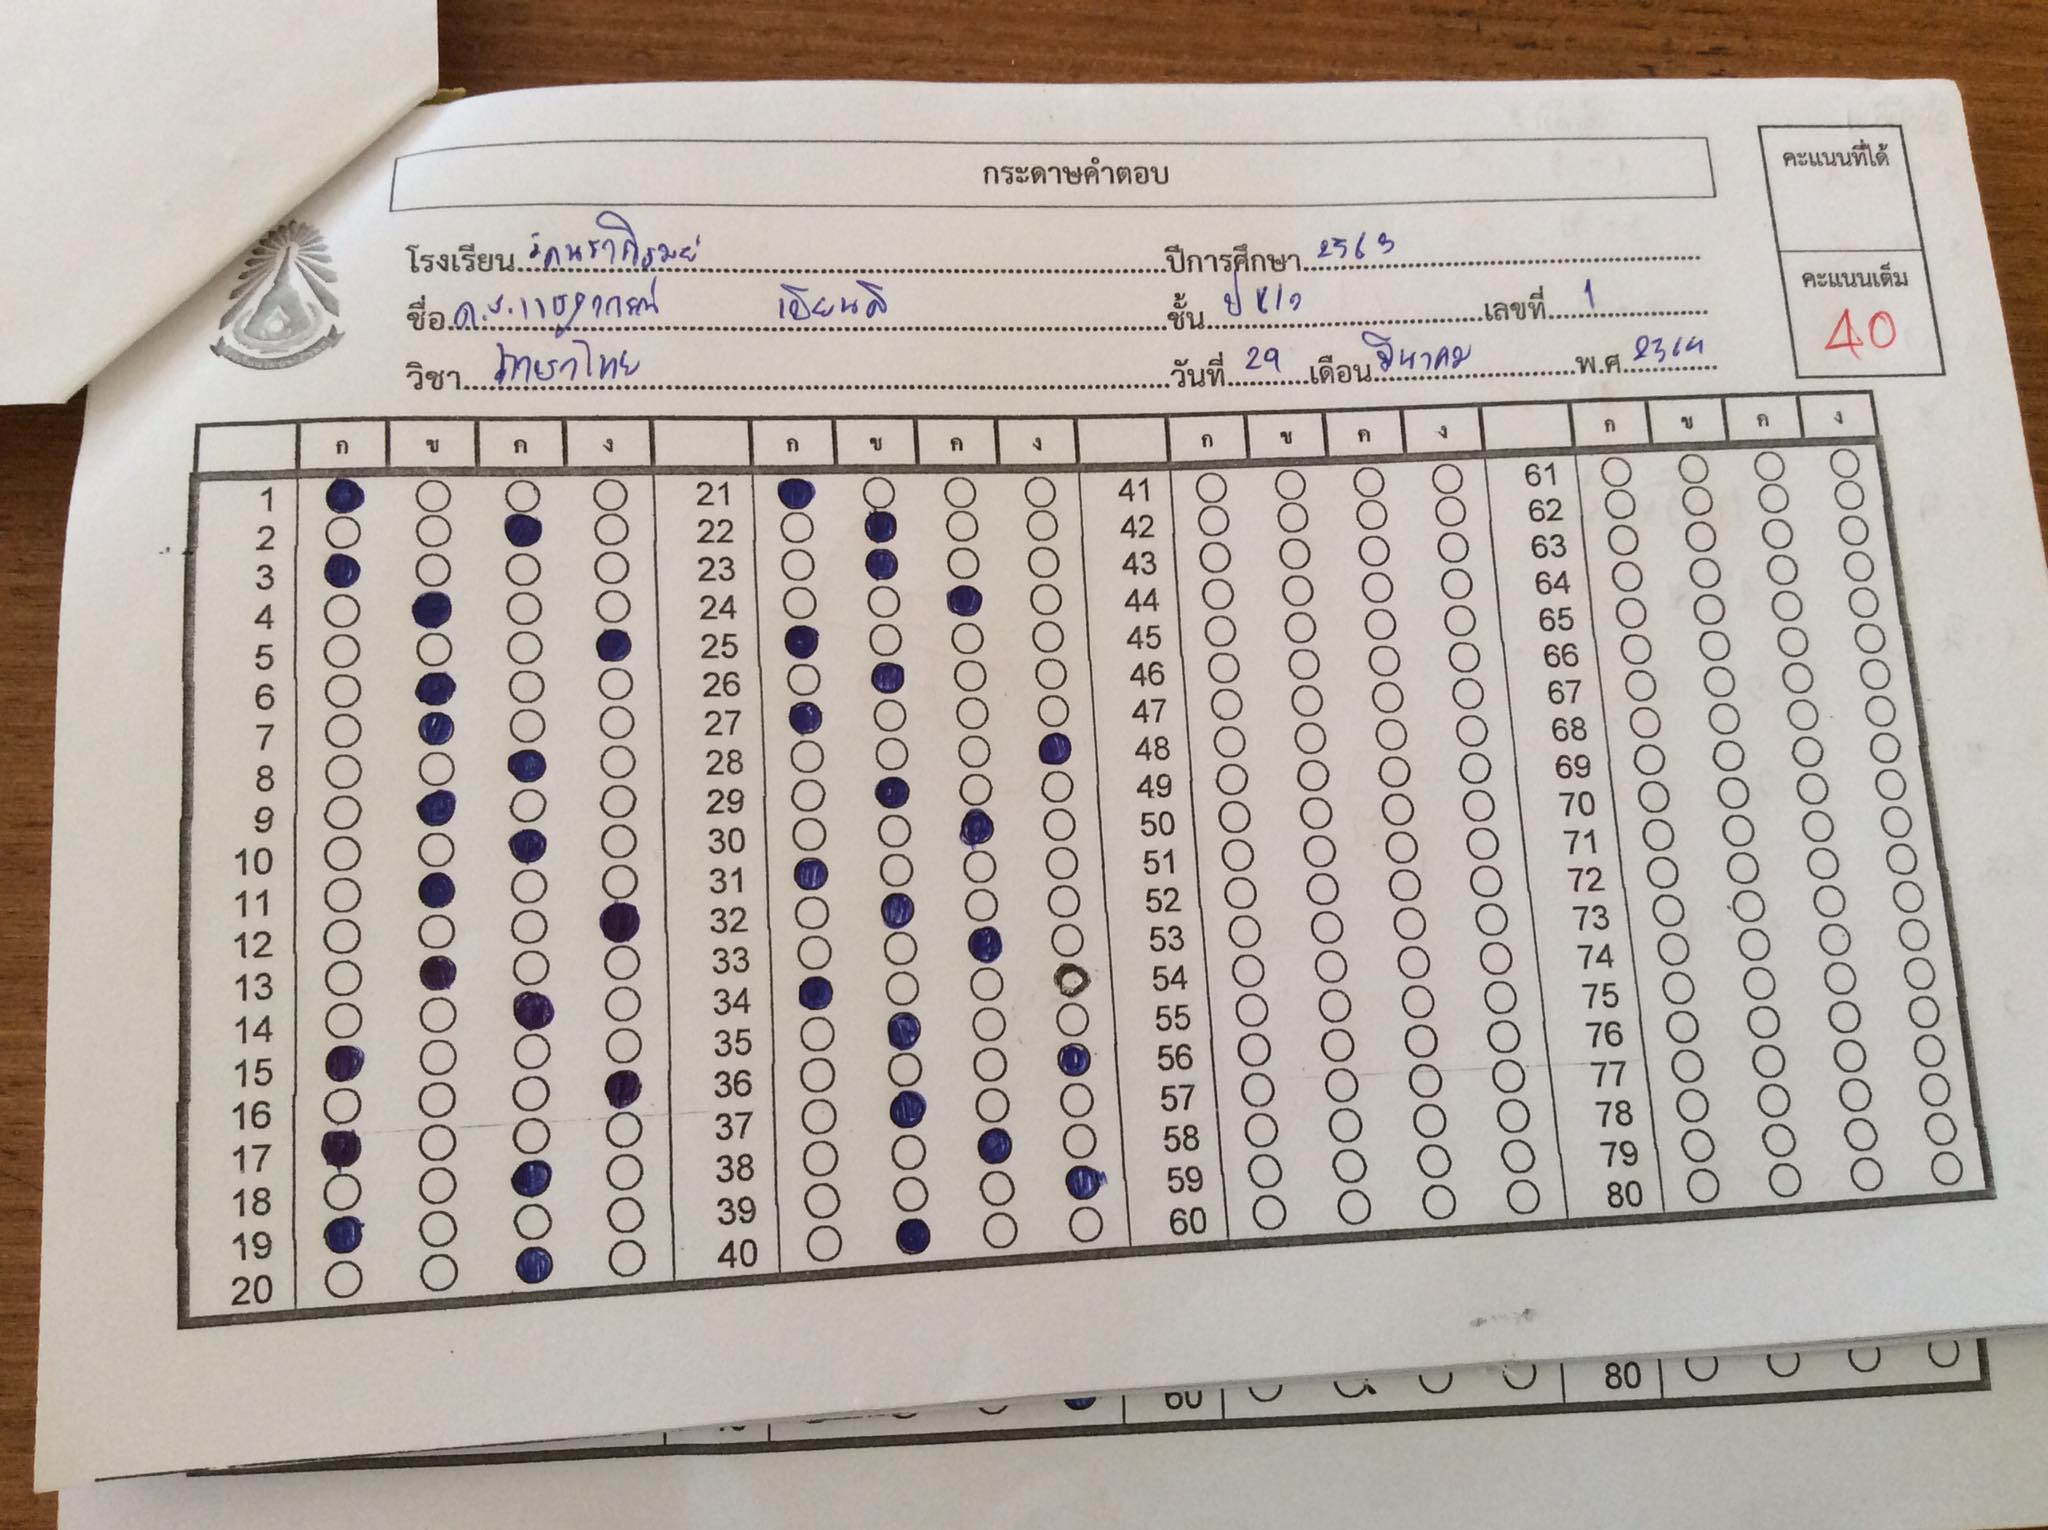 กระดาษคำตอบ
คะแนนที่ได้
โรงเรียน ปีการศึกษา 2563
ชื่อ ชั้น เลขที่ 1
คะแนนเต็ม
40
วิชา ภาษาไทย วันที่ 29 เดือน มีนาคม พ.ศ 2564
ก ข ค ง ก ข ค ง ก ข ค ง ก ข ค ง
1 21 41 61
2 22 42 62
3 23 43 63
4 24 44 64
5 25 45 65
6 26 46 66
7 27 47 67
8 28 48 68
9 29 49 69
10 30 50 70
11 31 51 71
12 32 52 72
13 33 53 73
14 34 54 74
15 35 55 75
16 36 56 76
17 37 57 77
18 38 58 78
19 39 59 79
20 40 60 80
60 80